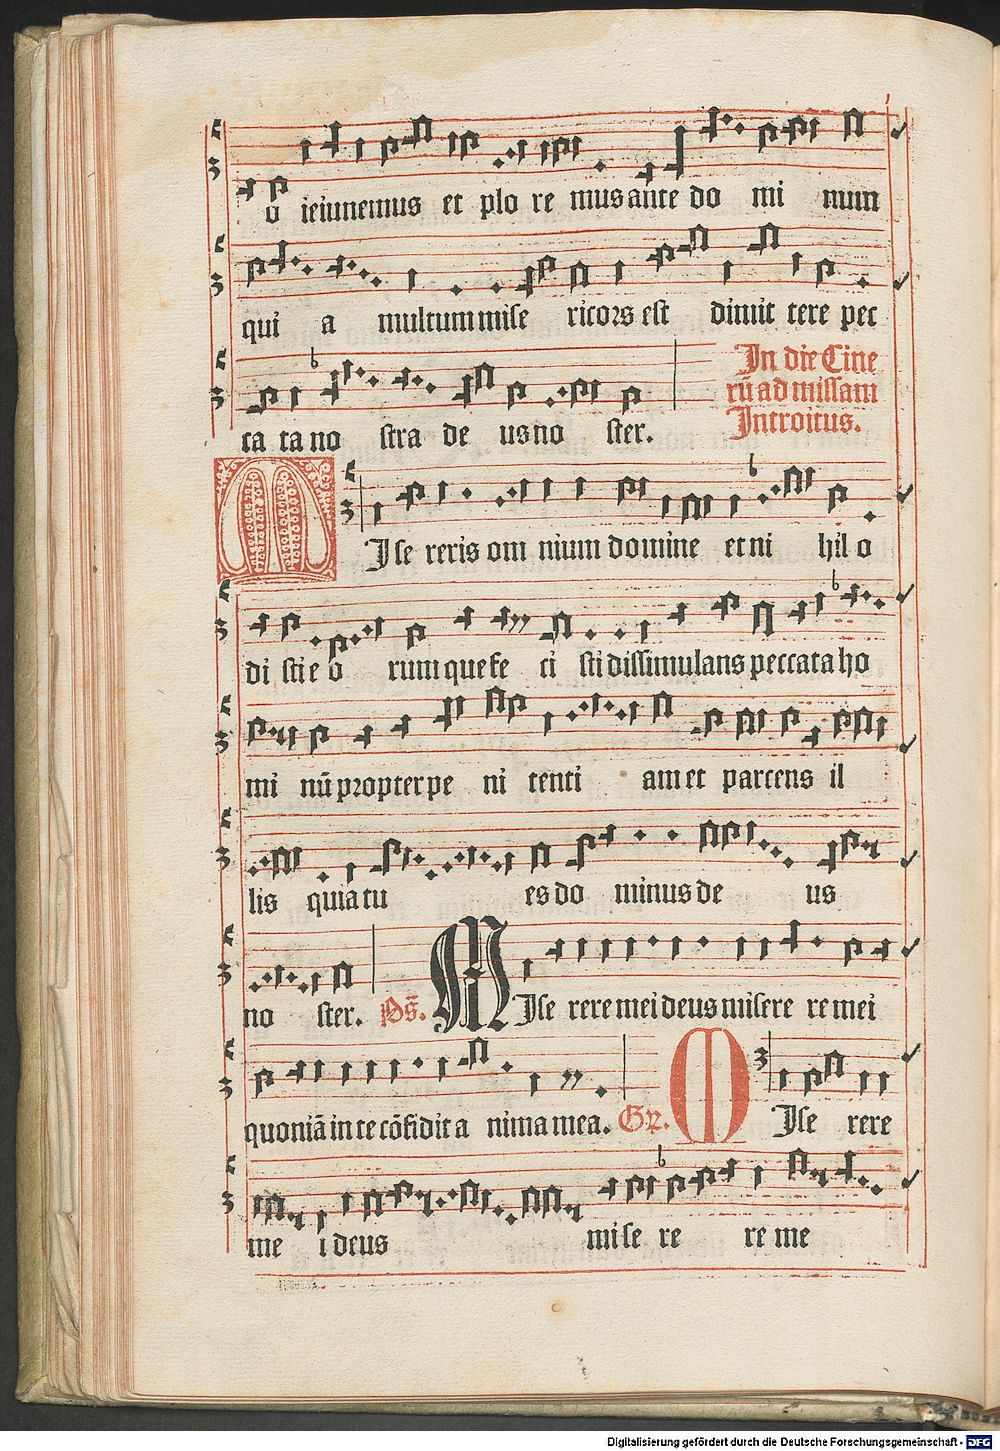 o ieiunemus et plo re mus ante do mi num
qui a multum mise ricors est dimit tere pec
ca ta no stra de us no ster.
In die Cine
rū ad missam
Introitus.
MIse reris om nium domine et ni hil o
di sti e o rum que fe ci sti dissimulans peccata ho
mi nū propter pe ni tenti am et parcens il
lis quia tu es do minus de us
no ster. Ps̄. MIse rere mei deus misere re mei
quoniā in te cōfidit a nima mea. Gr. MIse rere
me i deus mise re re me
Digitalisierung gefördert durch die Deutsche Forschungsgemeinschaft - DFG